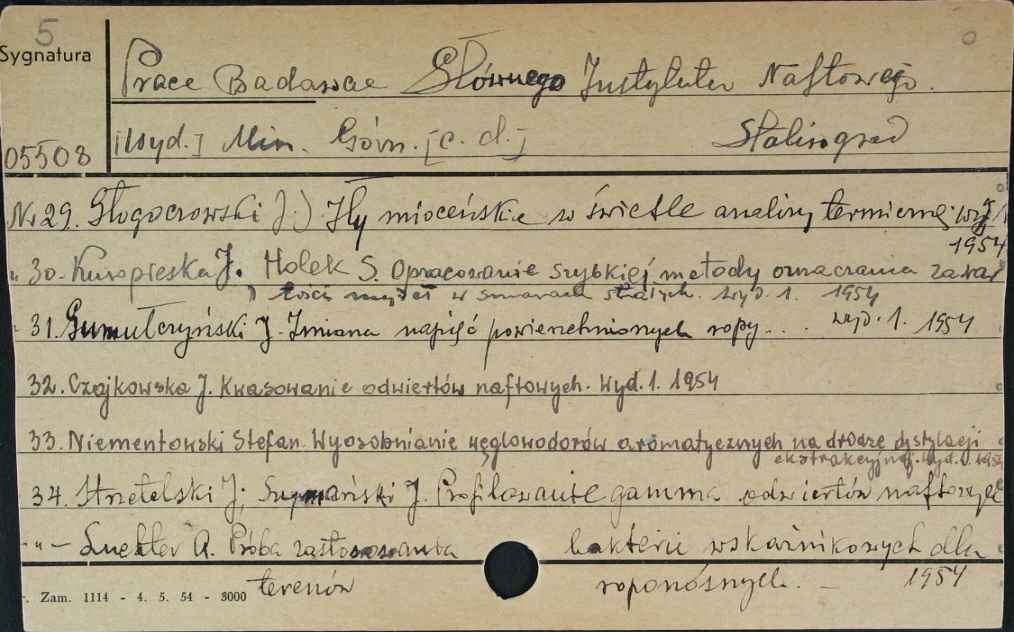 5
Sygnatura
Prace Badawcze Głównego Instytutu Naftowego.
05508 [Wyd.] Min. Górn. [c. d.] Stalinogród
Nr 29. Głogoczowski J.) Iły mioceńskie w świetle analizy termicznej. wyd. 1
1954
" 30. J. Holek S. Opracowanie szybkiej metody oznaczania zawar
tości mydeł w smarach stałych. Wyd. 1. 1954
" 31. Gumułczyński J. Zmiana napięć powierzchniowych ropy... wyd. 1. 1954
32. Czajkowska J. Kwasowanie odwiertów naftowych. Wyd. 1. 1954
33. Niementowski Stefan. Wyosobnianie węglowodorów aromatycznych na drodze dystylacji
ekstrakcyjnej. Wyd. 1. 1954
34. Strzetelski J; J. Profilowanie gamma odwiertów naftowych
- " - A. Próba zastosowania bakterii wskaźnikowych dla
terenów roponośnych. – 1954
Zam. 1114 - 4. 5. 54 - 3000